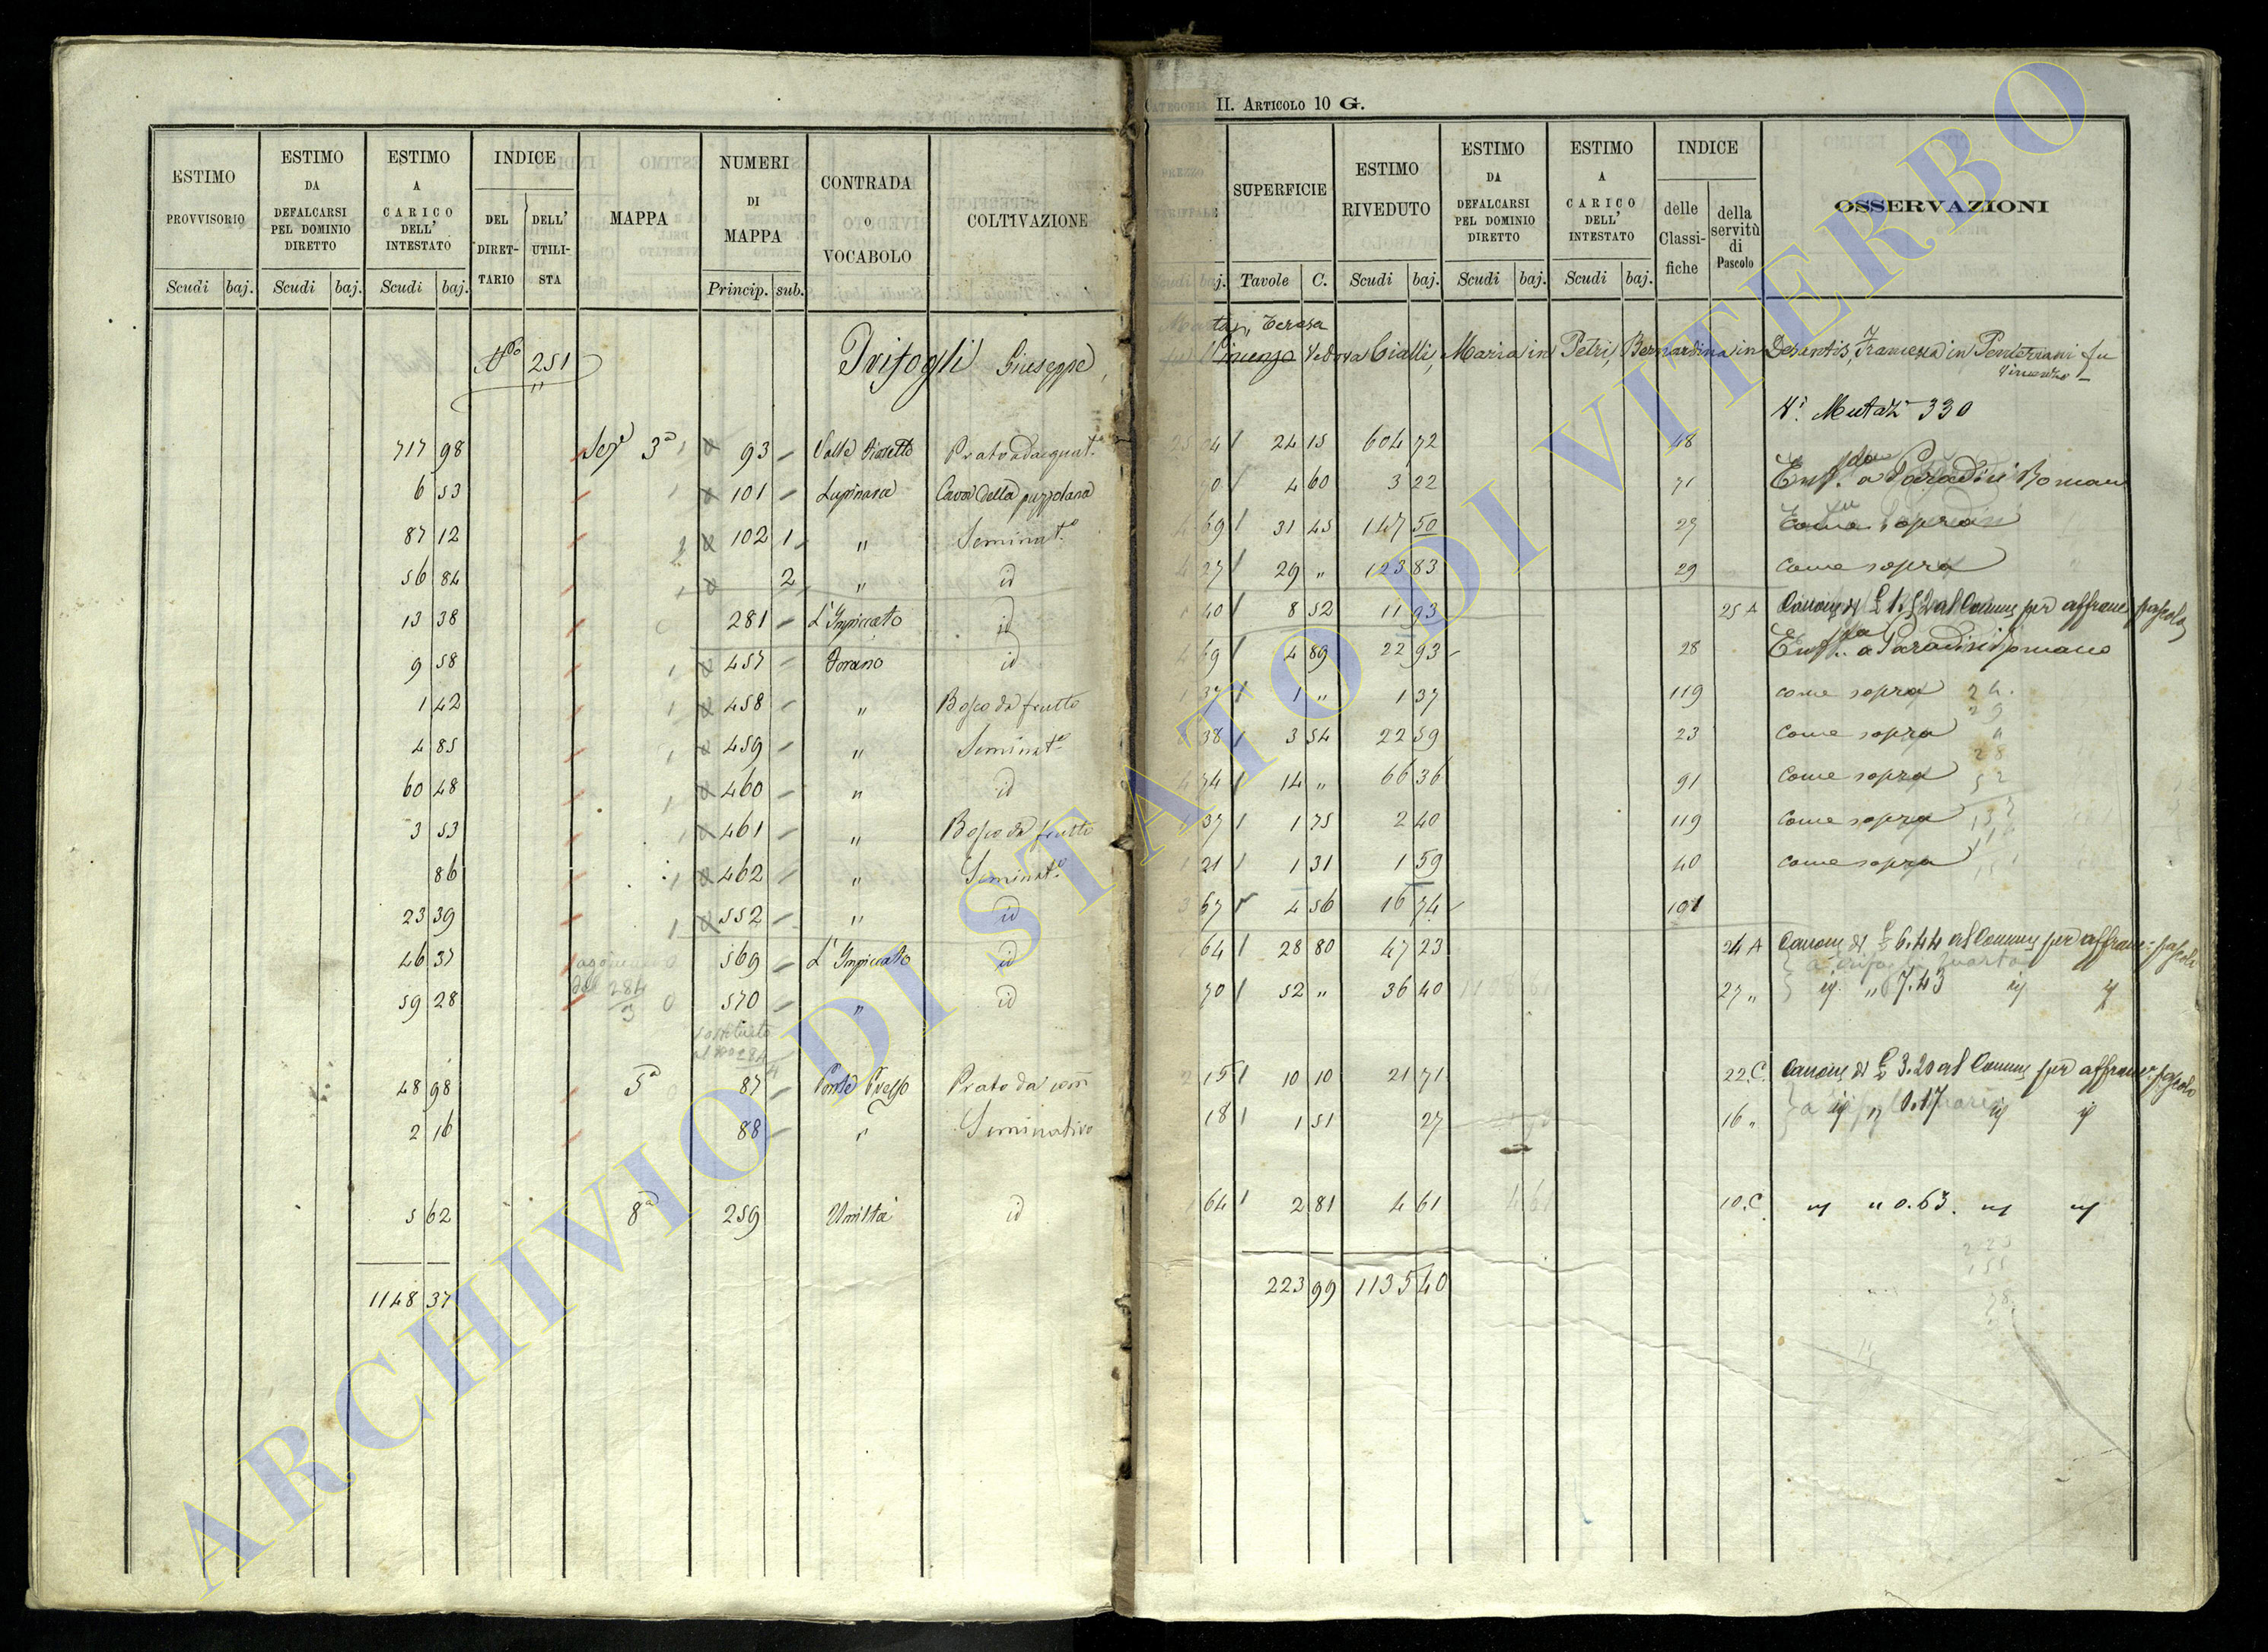 CATEGORIA II. ARTICOLO 10 G.
ESTIMO PROVVISORIO Scudi baj.
ESTIMO DA DEFALCARSI PEL DOMINIO DIRETTO Scudi baj.
ESTIMO A CARICO DELL' INTESTATO Scudi baj.
INDICE DEL DIRETTARIO DELL' UTILISTA
MAPPA
NUMERI DI MAPPA Princip. sub.
CONTRADA O VOCABOLO
COLTIVAZIONE
PREZZO TARIFFALE Scudi baj.
SUPERFICIE Tavole C.
ESTIMO RIVEDUTO Scudi baj.
ESTIMO DA DEFALCARSI PEL DOMINIO DIRETTO Scudi baj.
ESTIMO A CARICO DELL' INTESTATO Scudi baj.
INDICE delle Classifiche della servitù di Pascolo
OSSERVAZIONI
251 Trifogli Giuseppe, Teresa
Vincenzo vedova Cialli, Maria in Petri, Bernardina in Desantis, Francesca in Penteriani fu
Vincenzo
N.i Mutaz. 330
717 98 Sez.e 3a 93 Valle Prato adacquat. 24 15 604 72 48
6 53 101 Lupinara Cava della puzzolana 4 60 3 22 71 Enf. a Paradisi Romano
87 12 102 1 " Seminat.o 69 31 45 147 50 27 sopra
56 84 2 " id 27 29 " 123 83 29 come sopra
13 38 281 L'Impiccato id 40 8 52 11 93 25 A Canone di al Comune per affranc. pascolo
9 58 457 id 69 4 89 22 93 28 Enf. a Paradisi Romano
1 42 458 " Bosco da frutto 37 1 " 1 37 119 come sopra
4 85 459 " Seminat.o 38 3 54 22 59 23 Come sopra
60 48 460 " id 74 14 " 66 36 91 Come sopra
3 53 461 " Bosco da frutto 37 1 75 2 40 119 Come sopra
86 462 " Seminat.o 21 1 31 1 59 40 Come sopra
23 39 552 " id 67 4 56 16 74 101
46 37 569 L'Impiccato id 64 28 80 47 23 24 A Canone di £ 6.44 al Comune per affranc. pascolo
59 28 570 " id 70 52 " 36 40 27 " id. " 7.43 id id
48 98 5a 87 Prato da 15 10 10 21 71 22.C. Canone di £ 3.20 al Comune per affranc. pascolo
2 16 88 " Seminativo 18 1 51 27 16 " id " 0.17 id id
5 62 8a 259 Umiltà id 64 2 81 4 61 10.C id " 0.63. id id
1148 37 223 99 1135 40
ARCHIVIO DI STATO DI VITERBO